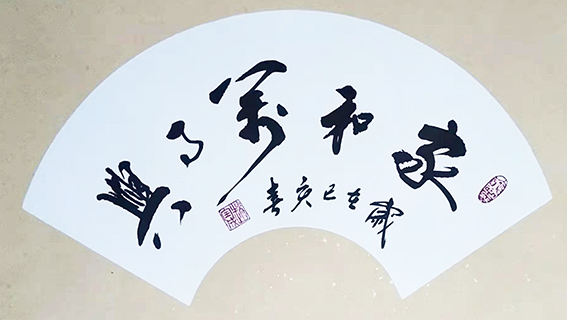 家和萬事興
歲在己亥春